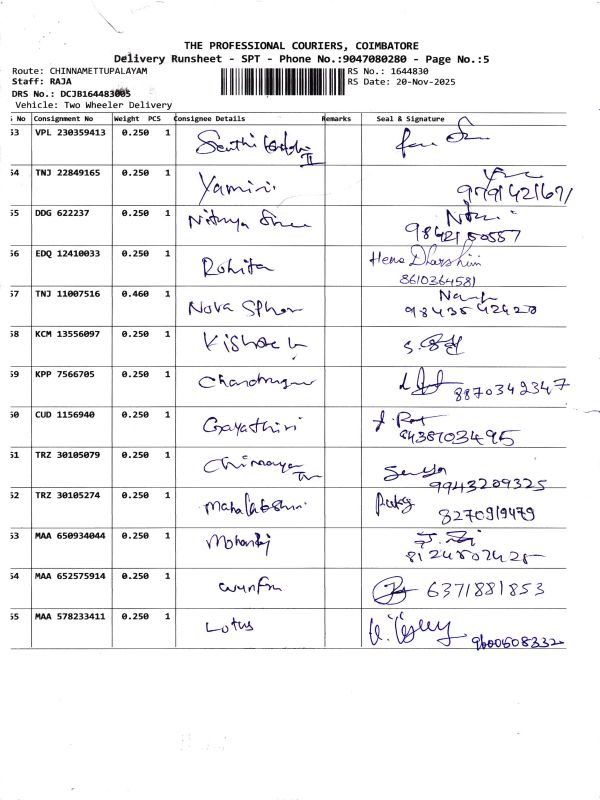 THE PROFESSIONAL COURIERS, COIMBATORE
Delivery Runsheet - SPT - Phone No.:9047080280 - Page No.:5
Route: CHINNAMETTUPALAYAM RS No.: 1644830
Staff: RAJA RS Date: 20-Nov-2025
DRS No.: DCJB164483005
Vehicle: Two Wheeler Delivery
No Consignment No Weight PCS Consignee Details Remarks Seal & Signature
53 VPL 230359413 0.250 1
54 TNJ 22849165 0.250 1 Yamini
9791421671
55 DDG 622237 0.250 1 Nithya
9842150557
56 EDQ 12410033 0.250 1 Rohita Hema Dharshini
8610364581
57 TNJ 11007516 0.460 1 Nova
9843542420
58 KCM 13556097 0.250 1 Kishore
59 KPP 7566705 0.250 1
8870342347
60 CUD 1156940 0.250 1 Gayathiri
8438703495
51 TRZ 30105079 0.250 1 Chinmaya
9943209325
52 TRZ 30105274 0.250 1 Mahalakshmi
8270919479
53 MAA 650934044 0.250 1
54 MAA 652575914 0.250 1 6371881853
55 MAA 578233411 0.250 1 Lotus
9600508332